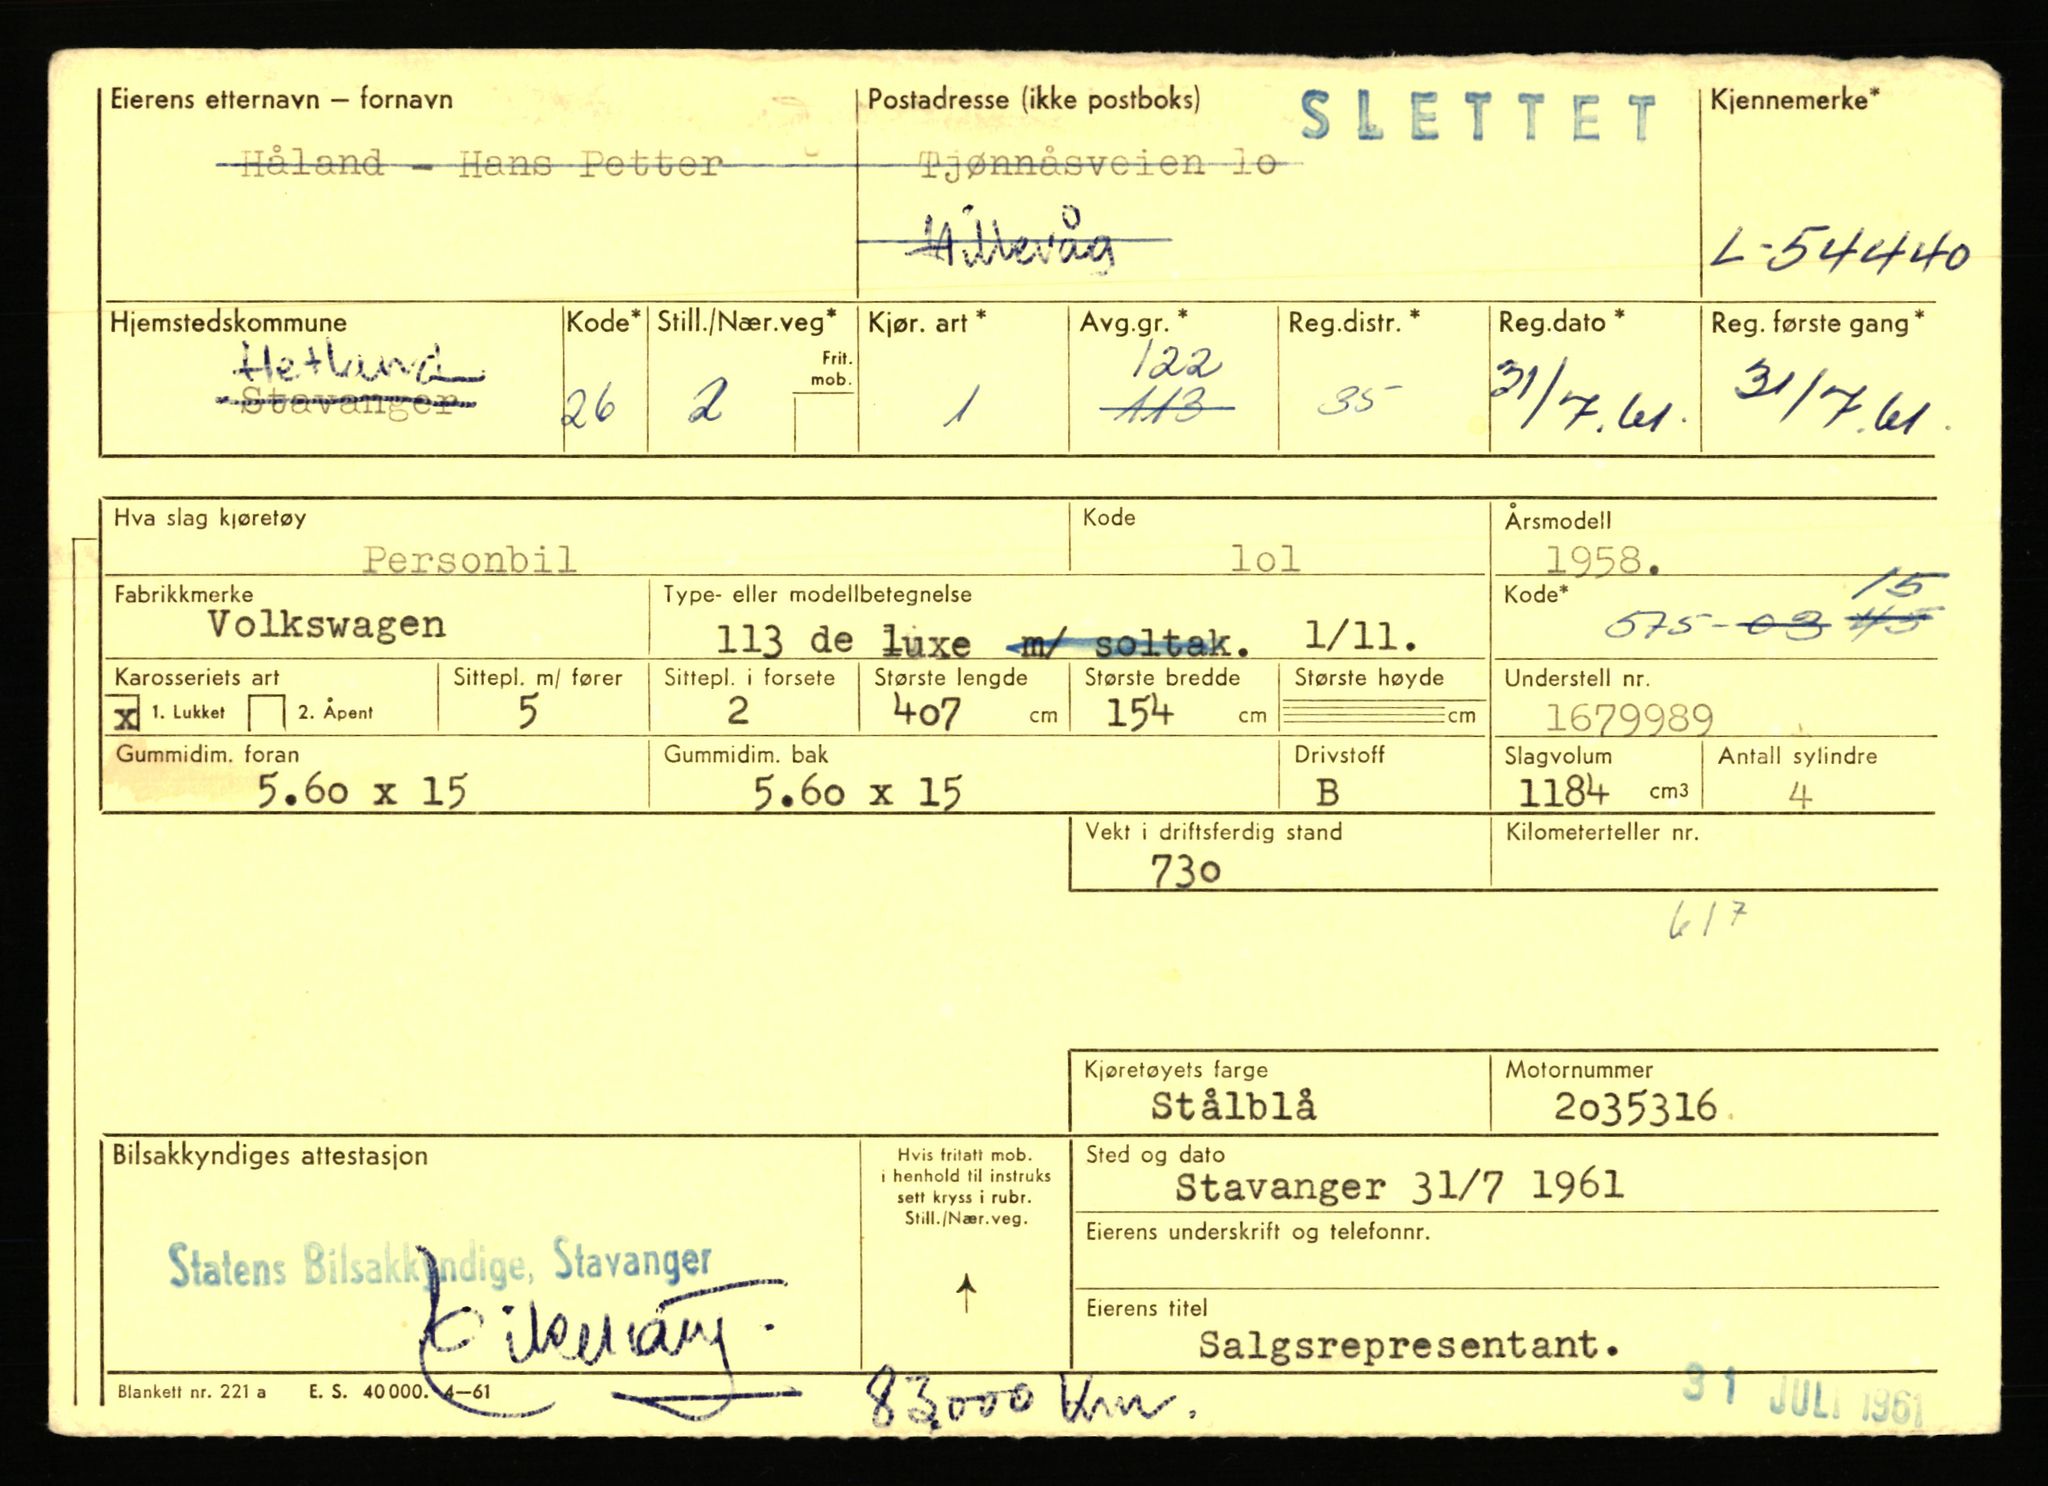 Eierens etternavn – fornavn Postadresse (ikke postboks) SLETTET Kjennemerke*
Håland - Hans Petter Tjønnåsveien 1o
Hillevåg L-54440
Hjemstedskommune Kode* Still./Nær.veg* Kjør. art * Avg.gr. * Reg.distr. * Reg.dato * Reg. første gang *
Frit. mob.
Hetland 122
Stavanger 26 2 1 113 35 31/7.61. 31/7.61.
Hva slag kjøretøy Kode Årsmodell
Personbil 1o1 1958.
Fabrikkmerke Type- eller modellbetegnelse Kode* 15
Volkswagen 113 de luxe m/ soltak. 1/11. 575-03 45
Karosseriets art Sittepl. m/ fører Sittepl. i forsete Største lengde Største bredde Største høyde Understell nr.
x 1. Lukket 2. Åpent 5 2 4o7 cm 154 cm cm 1679989
Gummidim. foran Gummidim. bak Drivstoff Slagvolum Antall sylindre
5.6o x 15 5.6o x 15 B 1184 cm3 4
Vekt i driftsferdig stand Kilometerteller nr.
73o
617
Kjøretøyets farge Motornummer
Stålblå 2o35316.
Bilsakkyndiges attestasjon Hvis fritatt mob. Sted og dato
i henhold til instruks Stavanger 31/7 1961
sett kryss i rubr.
Still./Nær.veg.
Eierens underskrift og telefonnr.
Statens Bilsakkyndige, Stavanger
Eierens titel
Salgsrepresentant.
Blankett nr. 221 a E. S. 40 000. 4–61 83.000 Km. 31 JULI 1961